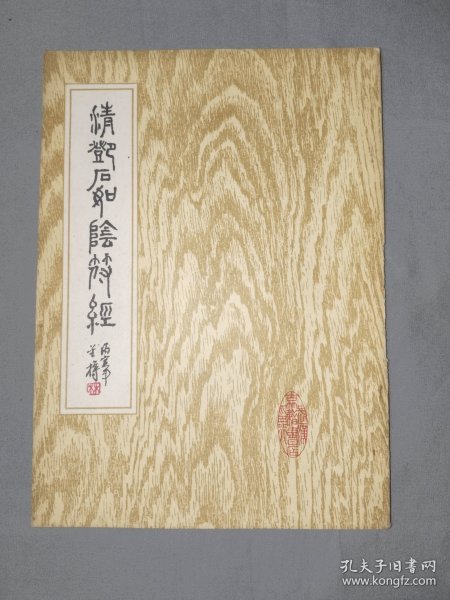 清鄧石如陰符經
丙寅年
孔夫子旧书网
www.kongfz.com